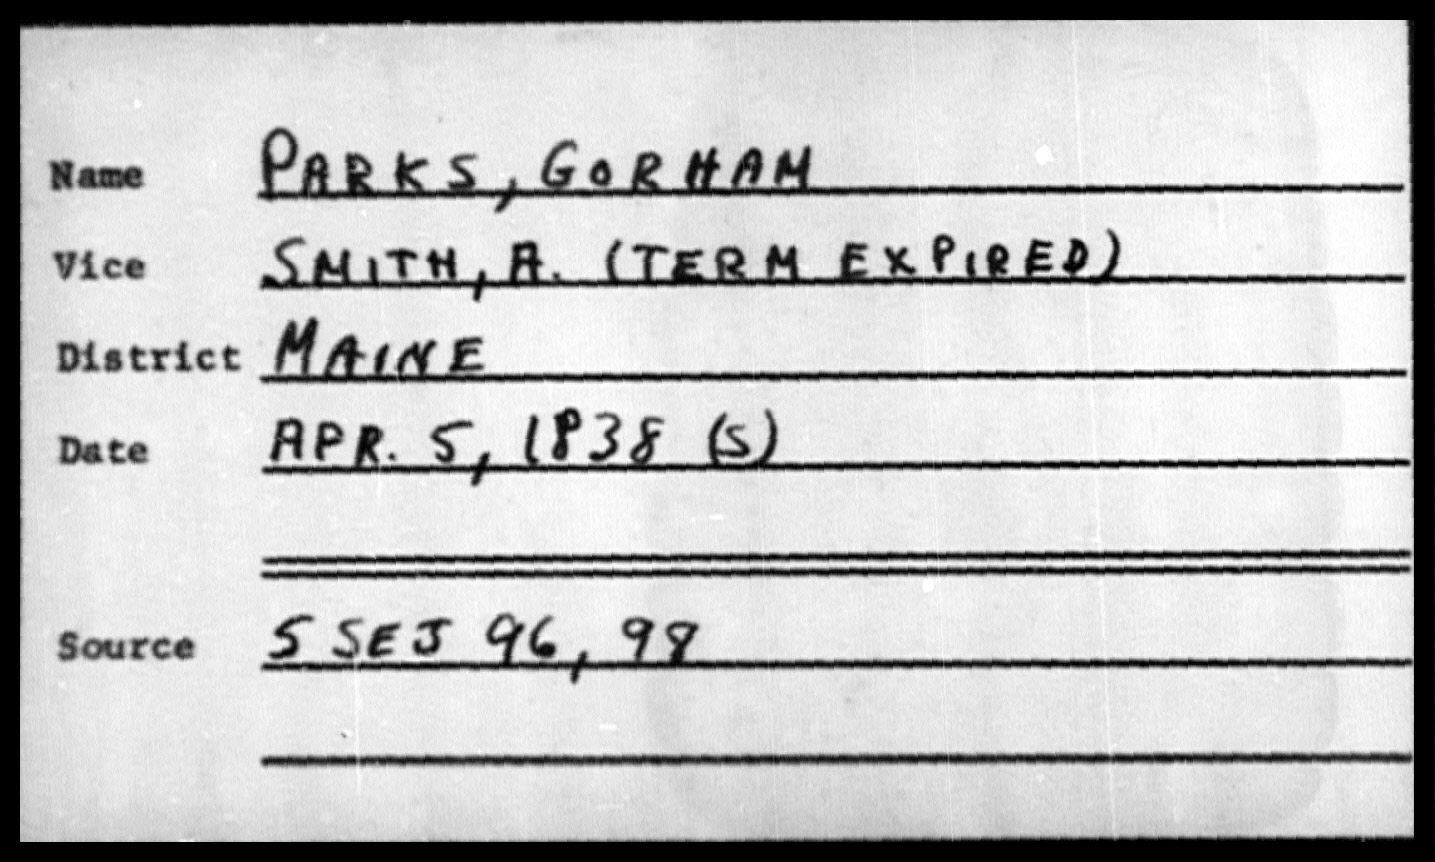 Name PARKS, GORHAM
Vice SMITH, A. (TERM EXPIRED)
District MAINE
Date APR. 5, 1838 (S)
Source 5 SEJ 96, 98